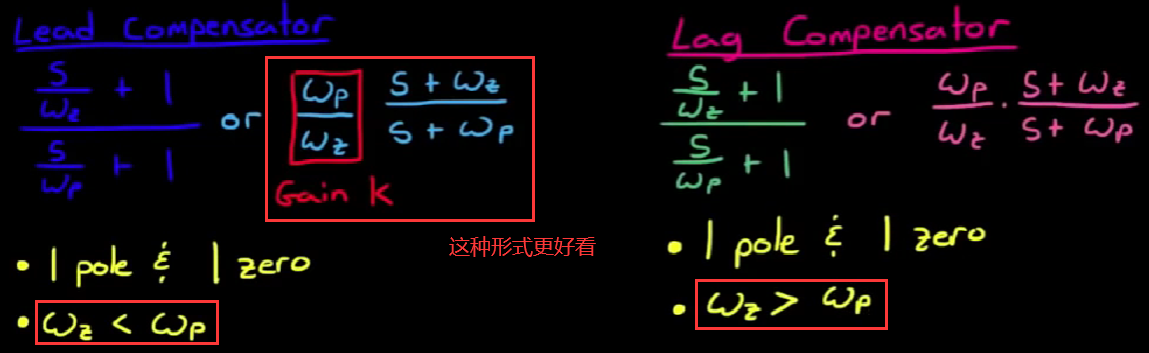 Lead Compensator
s/ωz + 1
s/ωp + 1
or
ωp/ωz s + ωz / s + ωp
Gain K
• 1 pole & 1 zero
• ωz < ωp
这种形式更好看
Lag Compensator
s/ωz + 1
s/ωp + 1
or
ωp/ωz · s + ωz / s + ωp
• 1 pole & 1 zero
• ωz > ωp